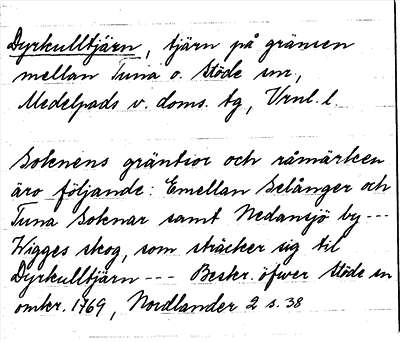 Dyrkulltjärn, tjärn på gränsen
mellan Tuna o. Stöde snr,
Medelpads v. doms. tg, Vrnl. l.
Soknens gräntsor och råmärken
äro följande: Emellan Selånger och
Tuna Soknar samt Nedansjö by ---
Wigges skog, som sträcker sig til
Dyrkulltjärn --- Beskr. öfwer Stöde sn
omkr. 1769, Nordlander 2 s. 38